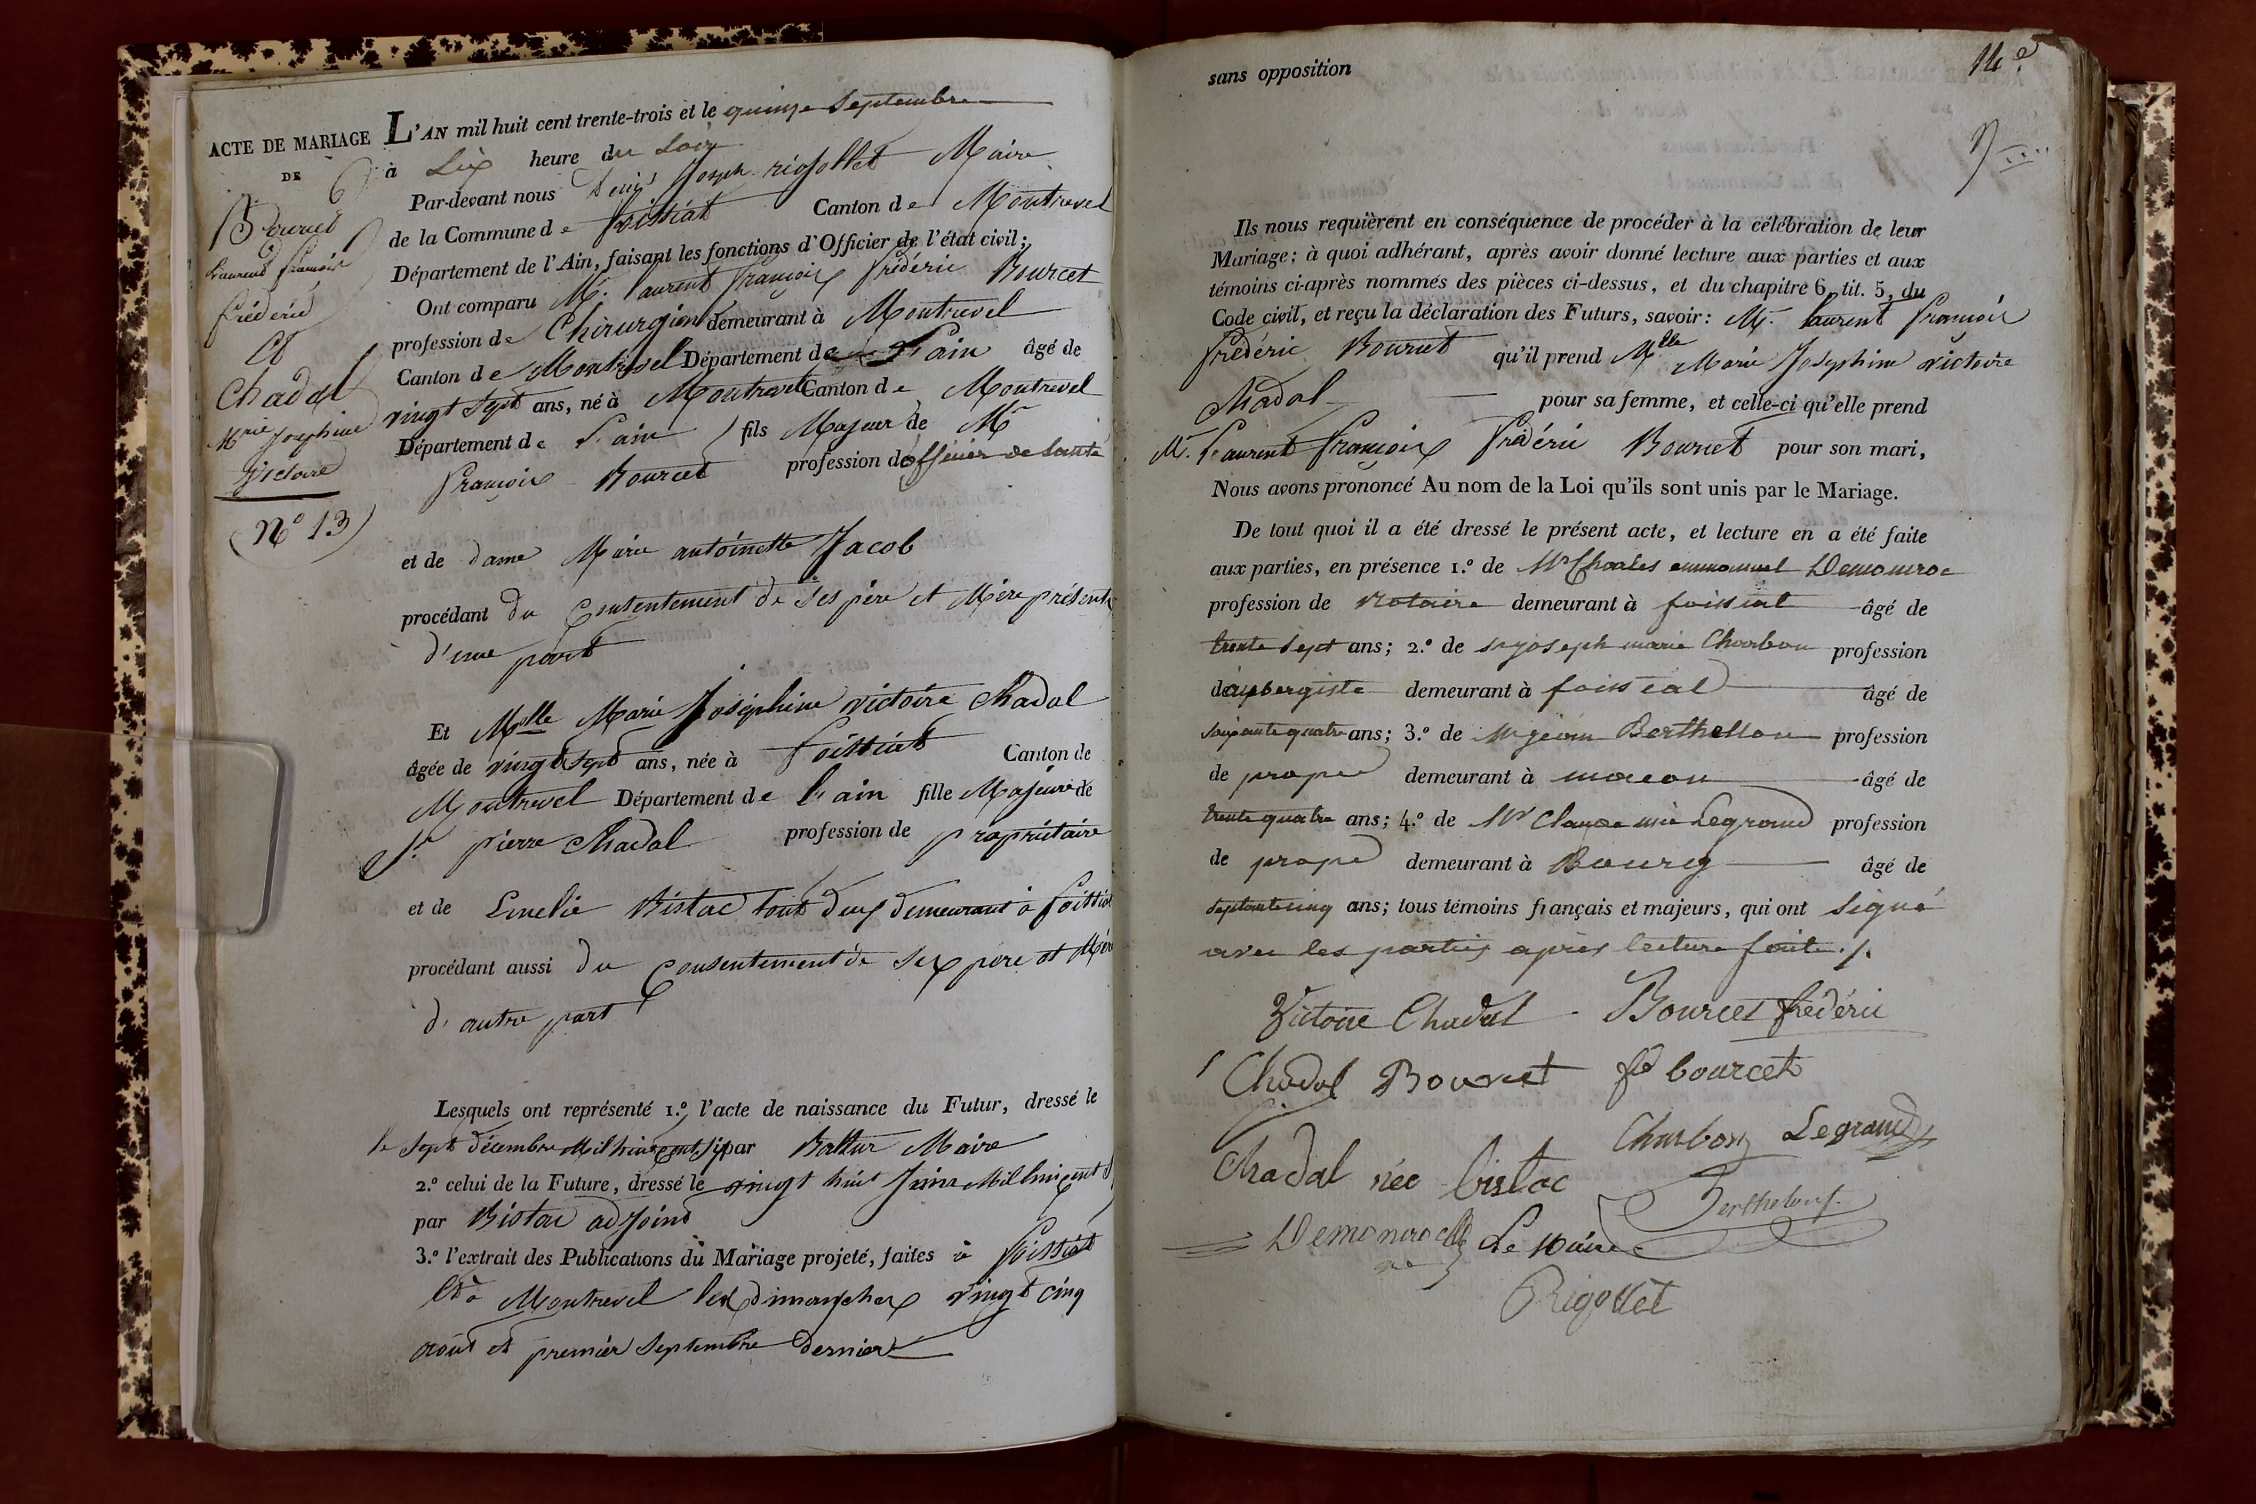 ACTE DE MARIAGE
DE
Bourcet
Laurent françois
frédéric
Et
Chadal
Mrie Joséphine
Victoire
N° 13
L'AN mil huit cent trente-trois et le quinze Septembre
à Six heure du Soir
Par-devant nous Joseph rigollet Maire
de la Commune de foissiat Canton de Montrevel
Département de l'Ain, faisant les fonctions d'Officier de l'état civil;
Ont comparu Mr. laurent françois frédéric Bourcet
profession de Chirurgien demeurant à Montrevel
Canton de Montrevel Département de L'ain âgé de
vingt sept ans, né à Montrevel Canton de Montrevel
Département de L'ain fils Majeur de Mr
françois Bourcet profession d'officier de Santé
et de dame Marie antoinette Jacob
procédant du Contentement de ses père et Mère présents
d'une part
Et Melle Marie Joséphine victoire Chadal
âgée de vingt sept ans, née à foissiat Canton de
Montrevel Département de L'ain fille Majeure de
Sr pierre Chadal profession de propriétaire
et de Emelie Bistac tout deux demeurant à foissiat
procédant aussi du Consentement de Ses père et Mère
d'autre part
Lesquels ont représenté 1.º l'acte de naissance du Futur, dressé le
le Sept décembre Mil huit cent Six par Maire
2.º celui de la Future, dressé le vingt huit Juin Mil huit cent
par Bistac adjoint
3.º l'extrait des Publications du Mariage projeté, faites à foissiat
Et à Montrevel les dimanches vingt cinq
août et premier Septembre dernier
sans opposition
14e
Ils nous requièrent en conséquence de procéder à la célébration de leur
Mariage; à quoi adhérant, après avoir donné lecture aux parties et aux
témoins ci-après nommés des pièces ci-dessus, et du chapitre 6, tit. 5, du
Code civil, et reçu la déclaration des Futurs, savoir: Mr. laurent françois
frédéric Bourcet qu'il prend Melle Marie Joséphine victoire
Chadal pour sa femme, et celle-ci qu'elle prend
Mr. Laurent françois frédéric Bourcet pour son mari,
Nous avons prononcé Au nom de la Loi qu'ils sont unis par le Mariage.
De tout quoi il a été dressé le présent acte, et lecture en a été faite
aux parties, en présence 1.º de Mr Charles emmanuel Demonroe
profession de Notaire demeurant à foissiat âgé de
trente sept ans; 2.º de sr joseph marie Charbon profession
d'aubergiste demeurant à foissiat âgé de
soixante quatre ans; 3.º de Berthellon profession
de propre demeurant à macon âgé de
trente quatre ans; 4.º de Mr Claude mie Legrand profession
de propre demeurant à Bourg âgé de
septante cinq ans; tous témoins français et majeurs, qui ont signé
avec les parties après lecture faite ./.
Victoire Chadal Bourcet frédéric
Chadal Bourcet fs bourcet
Charbon Legrand
Chadal née bistac
Berthelon
Le Maire
Rigollet